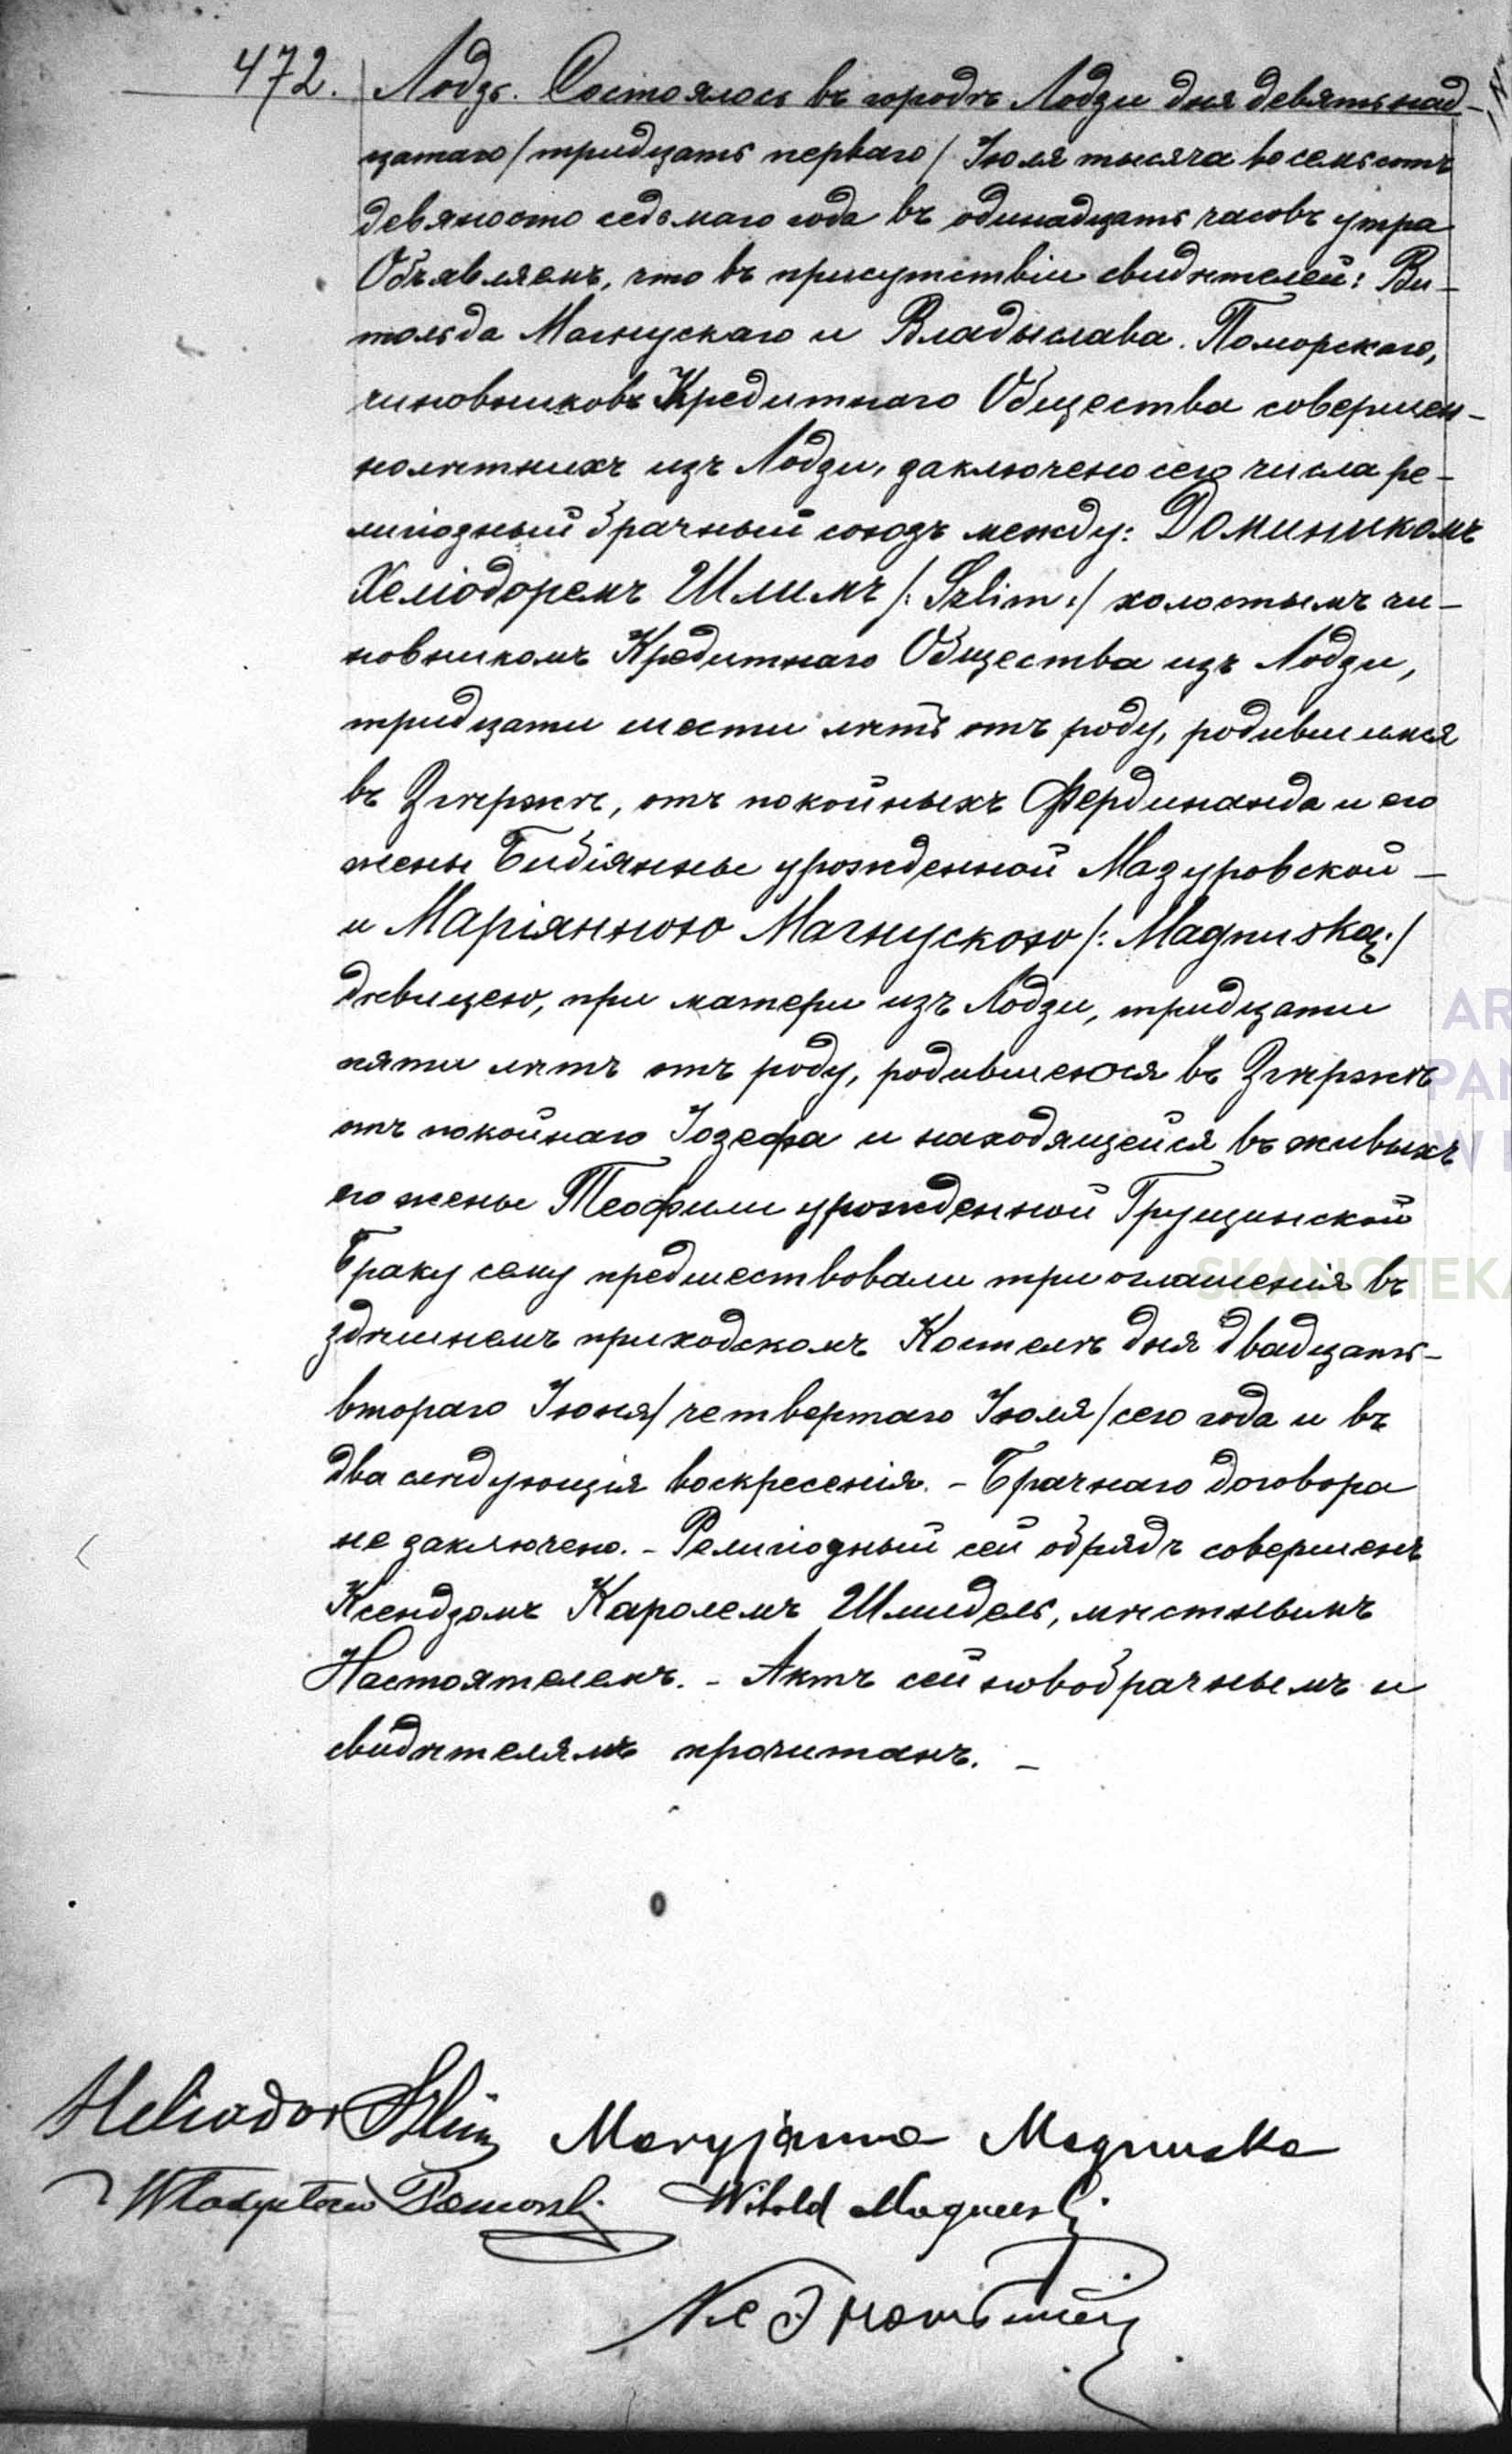 472. Лодзь. Состоялось въ городѣ Лодзи дня девятьнад-
цатаго / тридцать перваго / Іюля тысяча восемьсотъ
девяносто седьмаго года въ одинадцать часовъ утра
Объявляемъ, что въ присутствіи свидѣтелей: Ви-
тольда Магнускаго и Владыслава Поморскаго,
чиновниковъ Кредитнаго Общества совершен-
нолѣтнихъ изъ Лодзи, заключено сего числа ре-
лигіозный брачный союзъ между: Доминикомъ
Хеліодоремъ Шлимъ /: Szlim :/ холостымъ чи-
новникомъ Кредитнаго Общества изъ Лодзи,
тридцати шести лѣтъ отъ роду, родившимся
въ Згержѣ, отъ покойныхъ Фердинанда и его
жены Бибіянны урожденной Мазуровской —
и Маріянною Магнускою /: Magnuską :/
дѣвицею, при матери изъ Лодзи, тридцати
пяти лѣтъ отъ роду, родившеюся въ Згержѣ
отъ покойнаго Іозефа и находящейся въ живыхъ
его жены Теофили урожденной Грущинской
Браку сему предшествовали три оглашенія въ
здѣшнемъ приходскомъ Костелѣ дня двадцать-
втораго Іюня / четвертаго Іюля / сего года и въ
два слѣдующія воскресенія. - Брачнаго договора
не заключено. - Религіозный сей обрядъ совершенъ
Ксендзомъ Каролемъ Шмидель, мѣстнымъ
Настоятелемъ. - Актъ сей новобрачнымъ и
свидѣтелямъ прочитанъ. —
Heliodor Szlim Maryjanna Magnuska
Władysław Pomorski Witold Magnuski
AR
PAN
W
SKANOTEKA